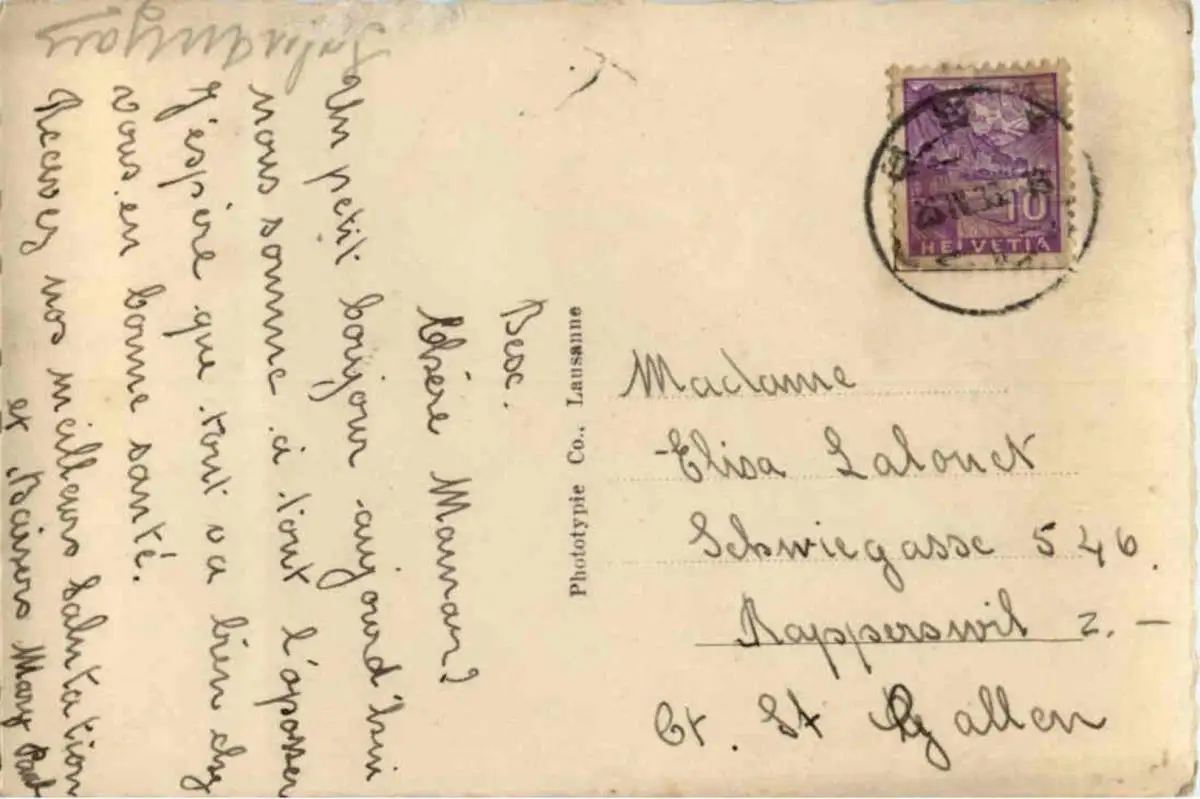 Bex.
Chère Maman?
Un petit boujour aujourd'hui
nous somme à tout l'oposser
J'éspère que tout va bien chez
vous en bonne santé.
Recevez nos meilleurs Salutation
et Baisers Mary
Phototypie Co., Lausanne
10
HELVETIA
Madame
Elisa Lalouet
Schmiegasse 546.
Rapperswil Z. —
Ct. St Gallen